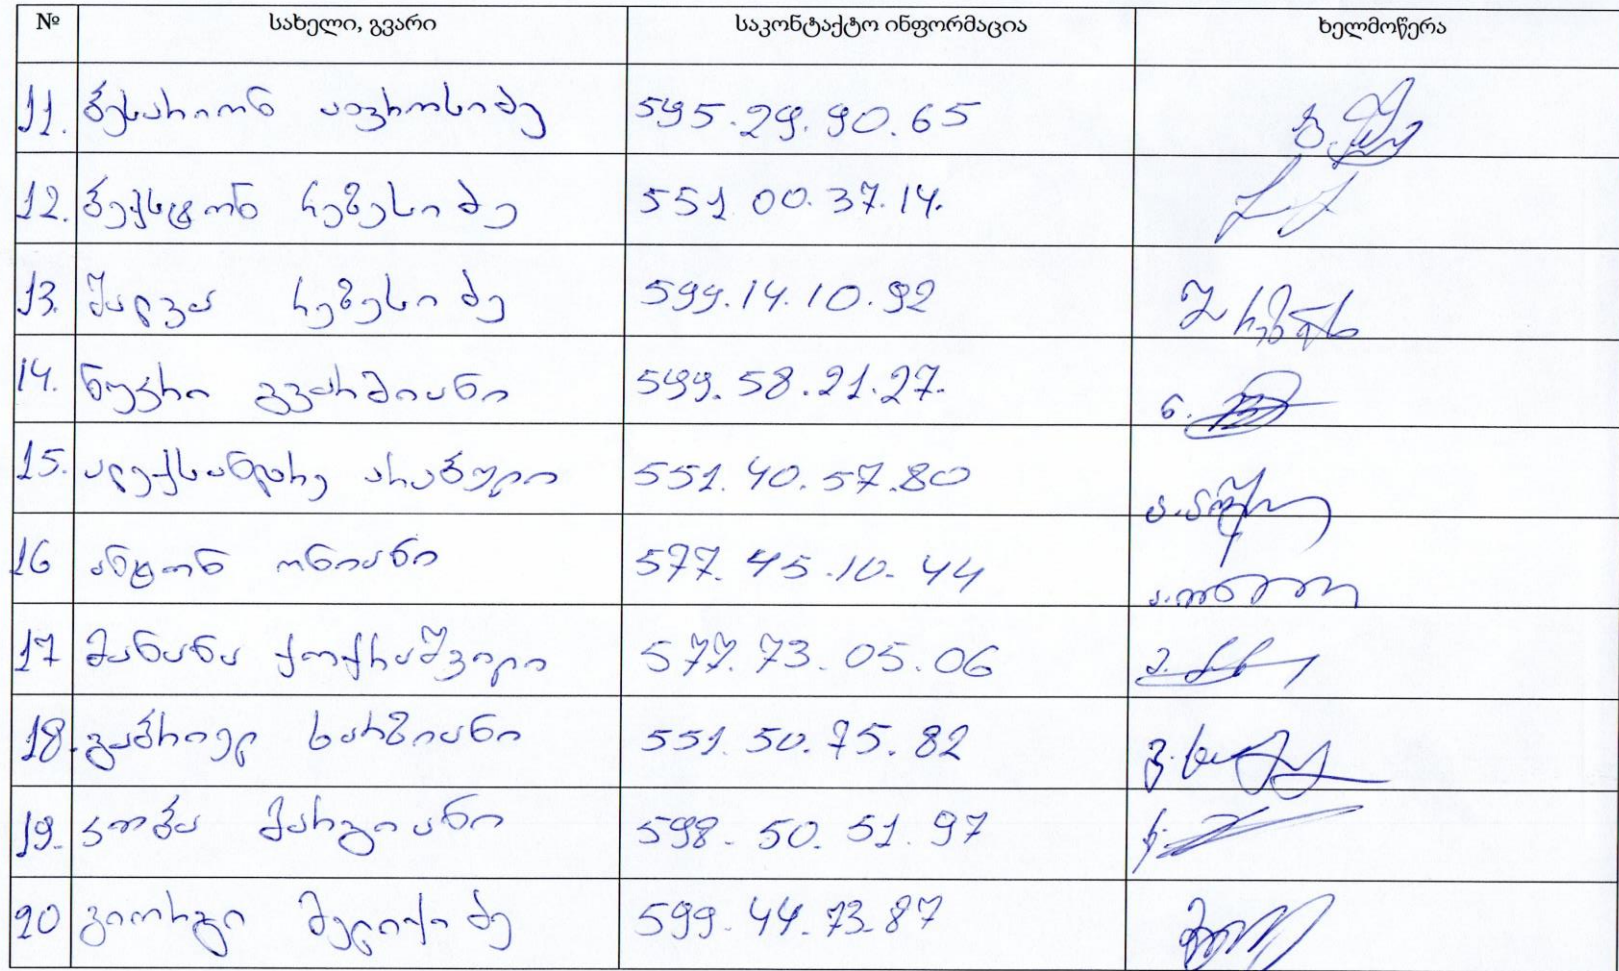 № სახელი, გვარი საკონტაქტო ინფორმაცია ხელმოწერა
11. ბესარიონ ავეროსიძე 595.29.90.65
12. ბექსტონ რეხესიძე 551 00.37.14.
13. შალვა რეხესიძე 599.14.10.92
14. ნუკრი გვარმიანი 599.58.21.27.
15. ალექსანდრე არაბული 551.40.57.80
16 ანტონ ონიანი 577.45.10.44
17 მანანა ქოქრაშვილი 577.73.05.06
18. გაბრიელ ხარზიანი 551.50.75.82
19. კობა მარგიანი 598.50.51.97
20 გიორგი მელიქიძე 599.44.73.87